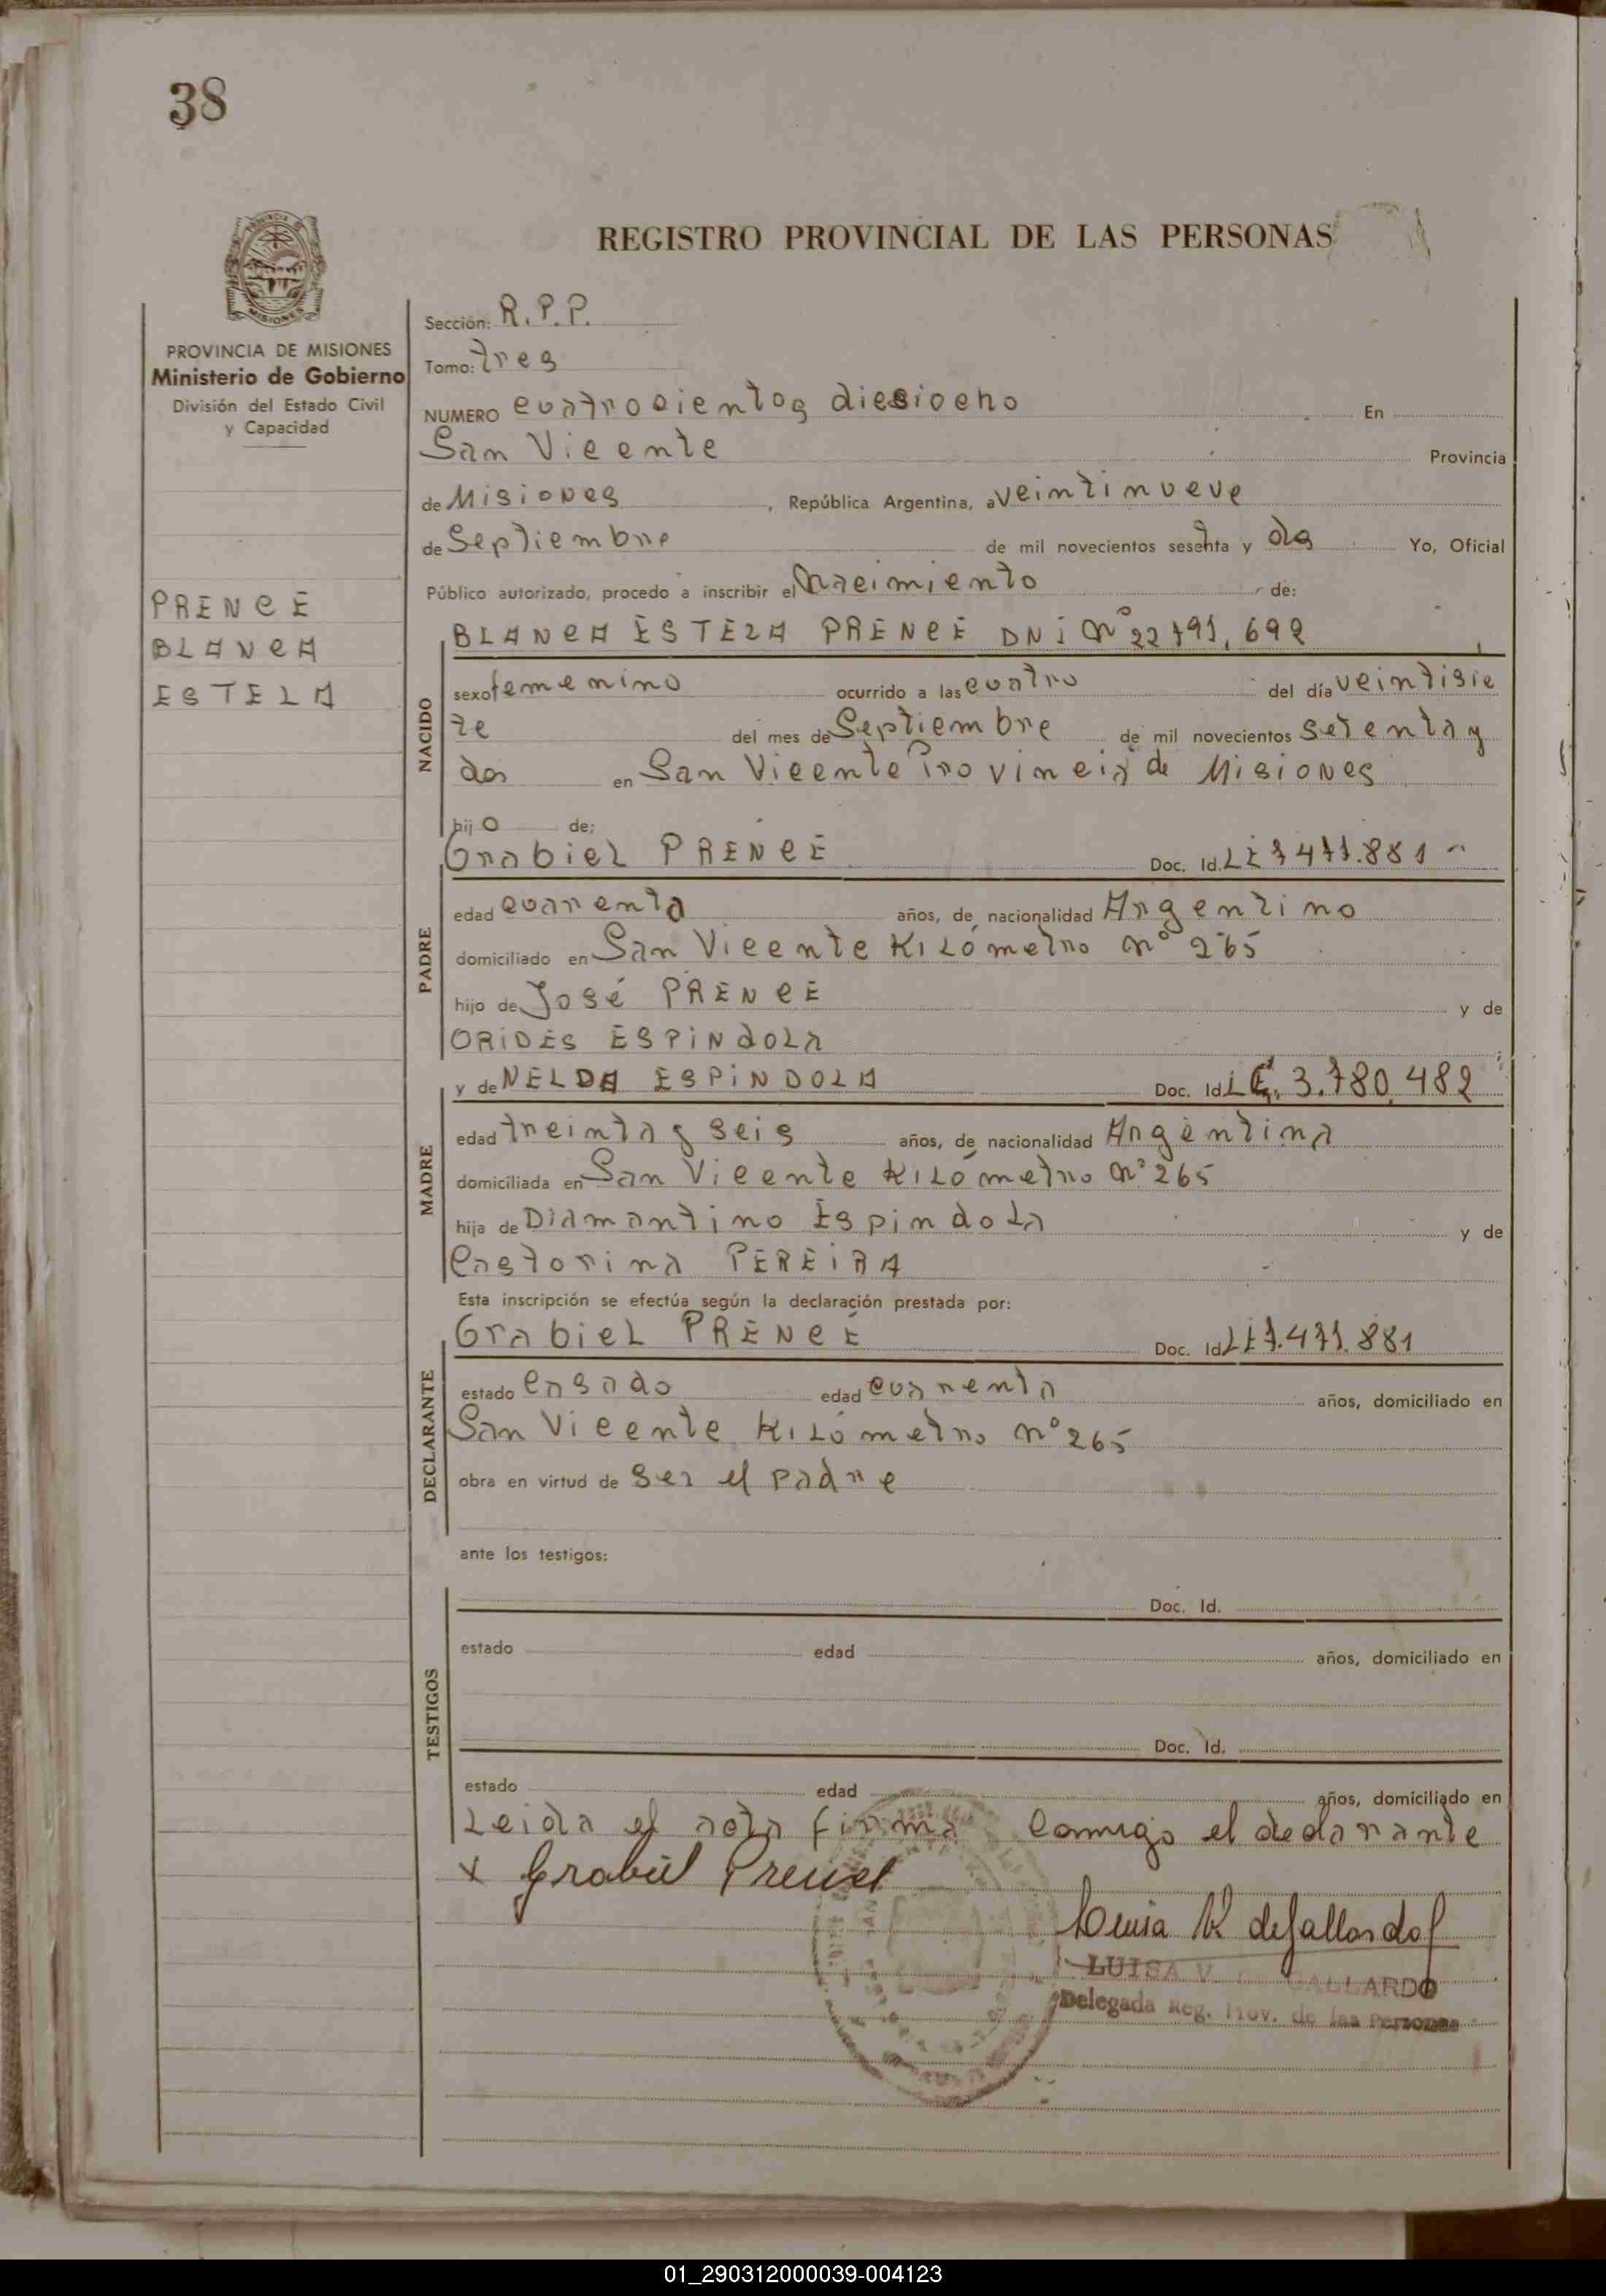 38
REGISTRO PROVINCIAL DE LAS PERSONAS
PROVINCIA DE MISIONES
Ministerio de Gobierno
División del Estado Civil
y Capacidad
PRENCE
BLANCA
ESTELA
Sección: R.P.P.
Tomo: tres
NUMERO cuatrocientos diesiocho En
San Vicente Provincia
de Misiones, República Argentina, a veintinueve
de Septiembre de mil novecientos sesenta y dos Yo, Oficial
Público autorizado, procedo a inscribir el nacimiento de:
BLANCA ESTELA PRENCE DNi nº 22791,692
NACIDO
sexo femenino ocurrido a las cuatro del día veintisie
te del mes de Septiembre de mil novecientos setenta y
dos en San Vicente Provincia de Misiones
hijo de;
Grabiel PRENCE Doc. Id. LE 7471.881
PADRE
edad cuarenta años, de nacionalidad Argentino
domiciliado en San Vicente Kilómetro nº 265
hijo de José PRENCE y de
ORIDES ESPINdOLA
y de NELDA ESPINDOLA Doc. Id. LC. 3.780,482
MADRE
edad treinta y seis años, de nacionalidad Argentina
domiciliada en San Vicente Kilómetro nº 265
hija de Diamantino Espindola y de
Castorina PEREIRA
Esta inscripción se efectúa según la declaración prestada por:
Grabiel PRENCE Doc. Id. LE 7.471.881
DECLARANTE
estado casado edad cuarenta años, domiciliado en
San Vicente Kilómetro nº 265
obra en virtud de ser el padre
ante los testigos:
TESTIGOS
Doc. Id.
estado edad años, domiciliado en
Doc. Id.
estado edad años, domiciliado en
Leida el acta firma conmigo el declarante
x Grabiel Prence
Luisa V de Gallardo
LUISA V. GALLARDO
Delegada Reg. Prov. de las Personas
01_290312000039-004123